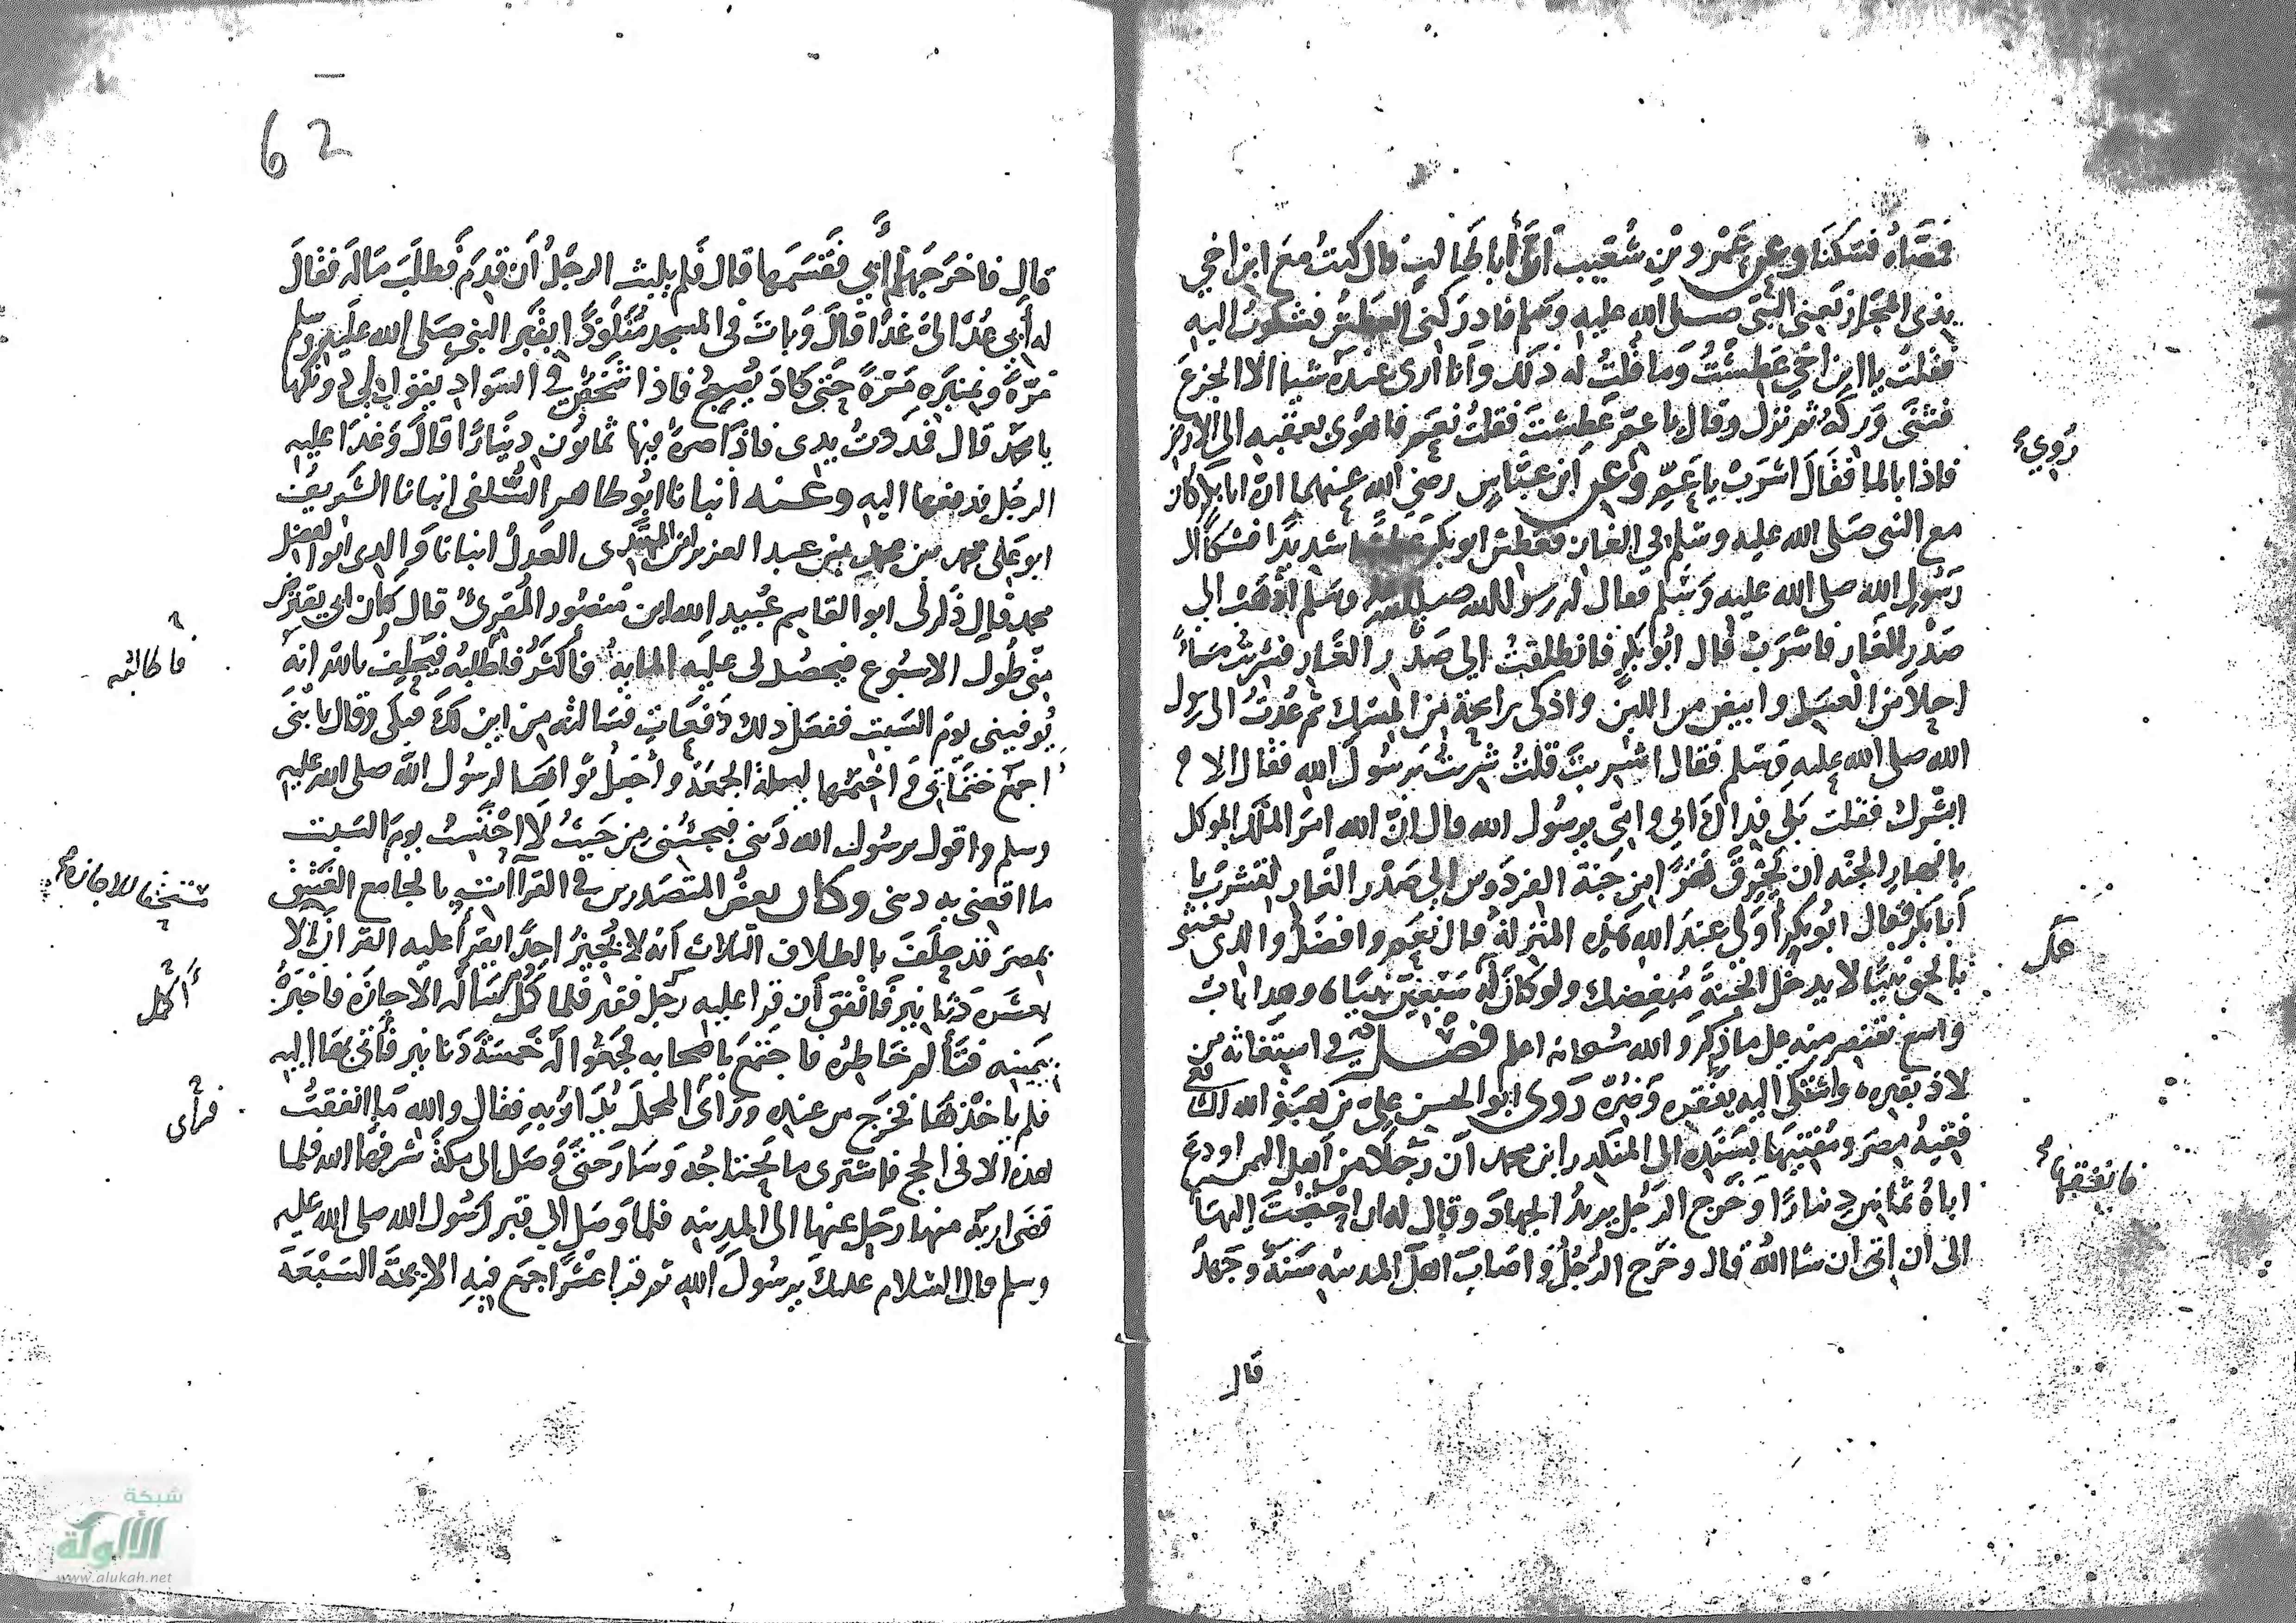 فتصاه فسكنا وعن عمرو بن شعيب ان أبا طالب قال كنت مع ابن اخي
بذي المجاز يعني النبي صلى الله عليه وسلم فادركني العطش فشكوت اليه
فقلت يا ابن اخي عطشت وما قلت له ذلك وانا ارى عنده شيا الا الجزع
فثنى وركه ثم نزل وقال يا عم عطشت فقلت نعم فاهوى بعقبه الى الارض
فاذا بالما فقال اشرب يا عم وعن ابن عباس رضي الله عنهما ان ابا بكر كان
روي
مع النبي صلى الله عليه وسلم في الغار فعطش ابو بكر عطشا شديدا فشكا الى
رسول الله صلى الله عليه وسلم فقال له رسول الله صلى الله عليه وسلم اذهب الى
صدر الغار فاشرب قال ابو بكر فانطلقت الى صدر الغار فشربت ماء
احلا من العسل وابيض من اللبن واذكى رايحة من المسك ثم عدت الى رسول
الله صلى الله عليه وسلم فقال اشربت قلت شربت يرسول الله فقال الا
ابشرك فقلت بلى فداك ابي وامي يرسول الله قال ان الله امر الملك الموكل
بانهار الجنة ان يخرق نهرا من جنة الفردوس الى صدر الغار لتشرب يا
أبا بكر فقال ابو بكر أولي عند الله هذه المنزلة قال نعم وافضل والذي بعثني
بالحق نبيا لا يدخل الجنة مبغضك ولو كان له سبعين نبيا وهذا باب
واسع نقتصر منه على ما ذكر والله سبحانه اعلم فصل في استغاثة من
لاذ بقبره واشتكى اليه بفقره وضره روى ابو الحسن علي بن هبة الله
فقيه مصر ومفتيها بسنده الى المنكدر ابن محمد ان رجلا من أهل اليمن اودع
اباه ثمانين دينارا وخرج الرجل يريد الجهاد وقال له ان احتجت اليها
فانفقها
الى أن اتى ان شا الله قال وخرج الرجل واصاب اهل المدينه سنة وجهد
قال
62
قال فاخرجها أبي فقسمها قال فلم يلبث الرجل أن قدم فطلب ماله فقال
له أبي عد الي غدا قال وبات في المسجد متلوذا بقبر النبي صلى الله عليه وسلم
مرة وبمنبره مرة حتى كاد يصبح فاذا شخص في السواد يقول لي دونكها
يا محمد قال فمددت يدي فاذا صرة فيها ثمانون دينارا قال وغدا عليه
الرجل فدفعها اليه وعنه انبانا ابو طاهر السلفي انبانا الشريف
ابو علي محمد بن محمد بن عبد العزيز ابن المهتدى العدل انبانا والدي ابو الفضل
محمد قال ذكر لي ابو القاسم عبيد الله ابن منصور المقرئ قال كان ابي يقترض
مني طول الاسبوع فيحصل لي عليه الماية فأكثر فأطلبه فيحلف بالله انه
فاطالبه
يوفيني يوم السبت ففعل ذلك دفعات فسالته من اين لك فبكى وقال يا بني
اجمع ختماتي واختمها ليلة الجمعة واجعل ثوابها لرسول الله صلى الله عليه
وسلم واقول يرسول الله ديني فيجئني من حيث لا احتسب يوم السبت
ما اقضي به ديني وكان بعض المتصدرين في القراآت بالجامع العتيق
بمصر قد حلف بالطلاق الثلاث أنه لا يجيز احدا يقرأ عليه القران الا
بعشرة دنانير فاتفق أن قرا عليه رجل فقير فلما كمل سأله الاجازة فاخبره
أكمل
بيمينه فتألم خاطره فاجتمع باصحابه فجمعوا له خمسة دنانير فأتى بها اليه
فلم ياخذها فخرج من عنده ورأى المحمل يدار به فقال والله ما انفقت
فرأى
هذه الا في الحج فاشترى ما يحتاجه وسار حتى وصل الى مكة شرفها الله فلما
قضى اربه منها رحل عنها الى المدينه فلما وصل الي قبر رسول الله صلى الله عليه
وسلم قال السلام عليك يرسول الله ثم قرا عشرا جمع فيه الايمة السبعة
شبكة
الألوكة
www.alukah.net